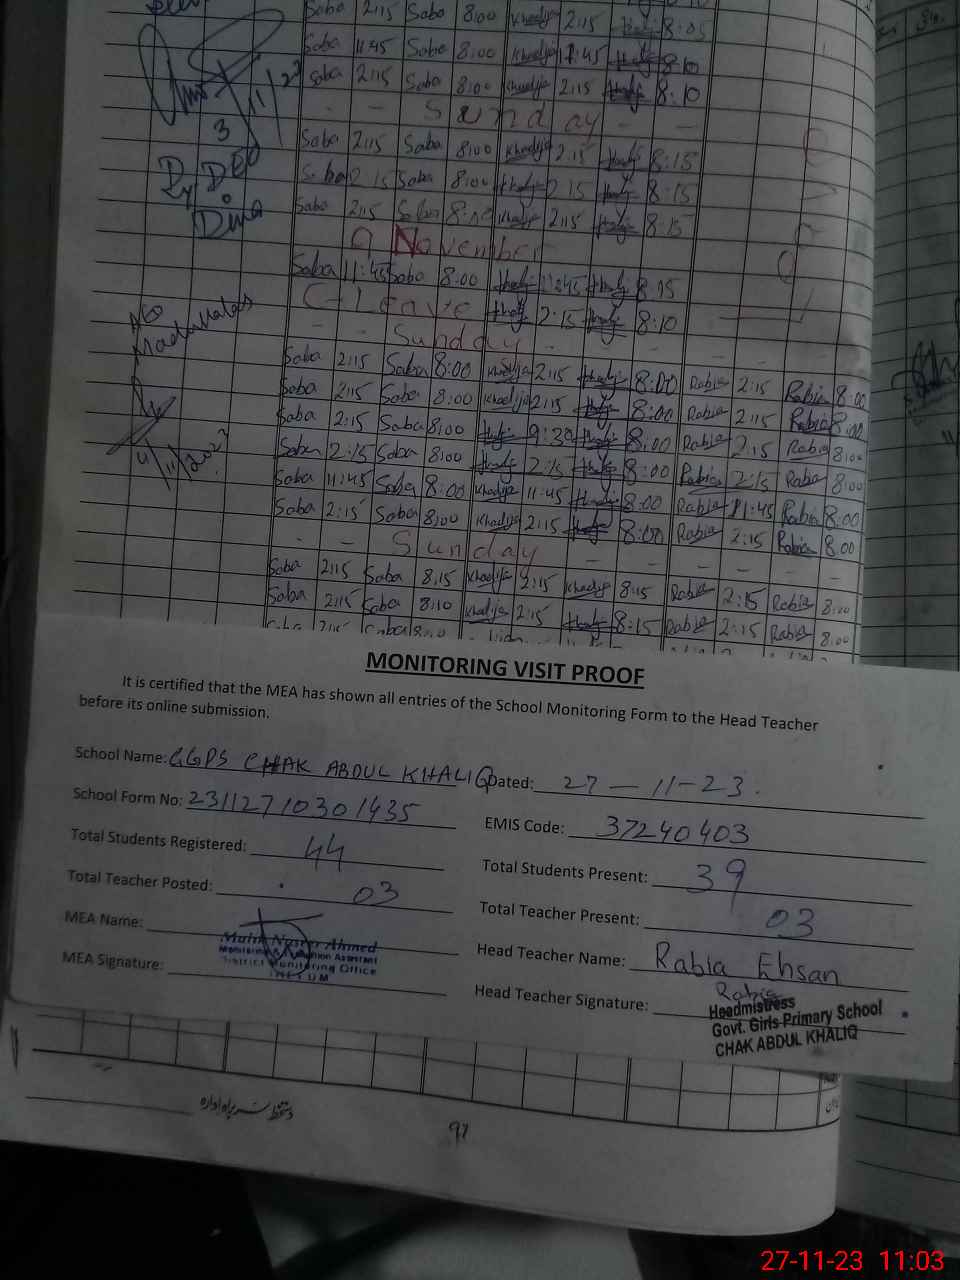 Saba 2:15 Saba 8:00 Khadija 2:15 8:05
Saba 11:45 Saba 8:00 Khadija 11:45 8:10
Saba 2:15 Saba 8:00 Khadija 2:15 8:10
- - Sunday - -
3
Saba 2:15 Saba 8:00 Khadija 2:15 8:15
Saba 2:15 Saba 8:00 2:15 8:15
Dy DEO
Dina
Saba 2:15 Saba 8:00 Khadija 2:15 8:15
9 November
Saba 11:45 Saba 8:00 11:45 8:15
C-Leave 2:15 8:10
- - Sunday - -
Saba 2:15 Saba 8:00 Khadija 2:15 8:00 Rabia 2:15 Rabia 8:00
Saba 2:15 Saba 8:00 Khadija 2:15 8:00 Rabia 2:15 Rabia 8:00
Saba 2:15 Saba 8:00 9:30 8:00 Rabia 2:15 Rabia 8:00
Saba 2:15 Saba 8:00 2:15 8:00 Rabia 2:15 Rabia 8:00
Saba 11:45 Saba 8:00 Khadija 11:45 8:00 Rabia 11:45 Rabia 8:00
Saba 2:15 Saba 8:00 Khadija 2:15 8:00 Rabia 2:15 Rabia 8.00
- - Sunday - - - - -
Saba 2:15 Saba 8:15 Khadija 2:15 Khadija 8:15 Rabia 2:15 Rabia 8:00
Saba 2:15 Saba 8:10 Khadija 2:15 8:15 Rabia 2:15 Rabia 8:00
MONITORING VISIT PROOF
It is certified that the MEA has shown all entries of the School Monitoring Form to the Head Teacher
before its online submission.
School Name: GGPS CHAK ABDUL KHALIQ Dated: 27-11-23.
School Form No: 23112710301435 EMIS Code: 37240403
Total Students Registered: 44 Total Students Present: 39
Total Teacher Posted: 03 Total Teacher Present: 03
MEA Name: Head Teacher Name: Rabia Ehsan
Ahmed
District Monitoring Office
JHELUM
MEA Signature: Head Teacher Signature: Rabia
Headmistress
Govt. Girls Primary School
CHAK ABDUL KHALIQ
دستخط سربراہ ادارہ
97
27-11-23 11:03